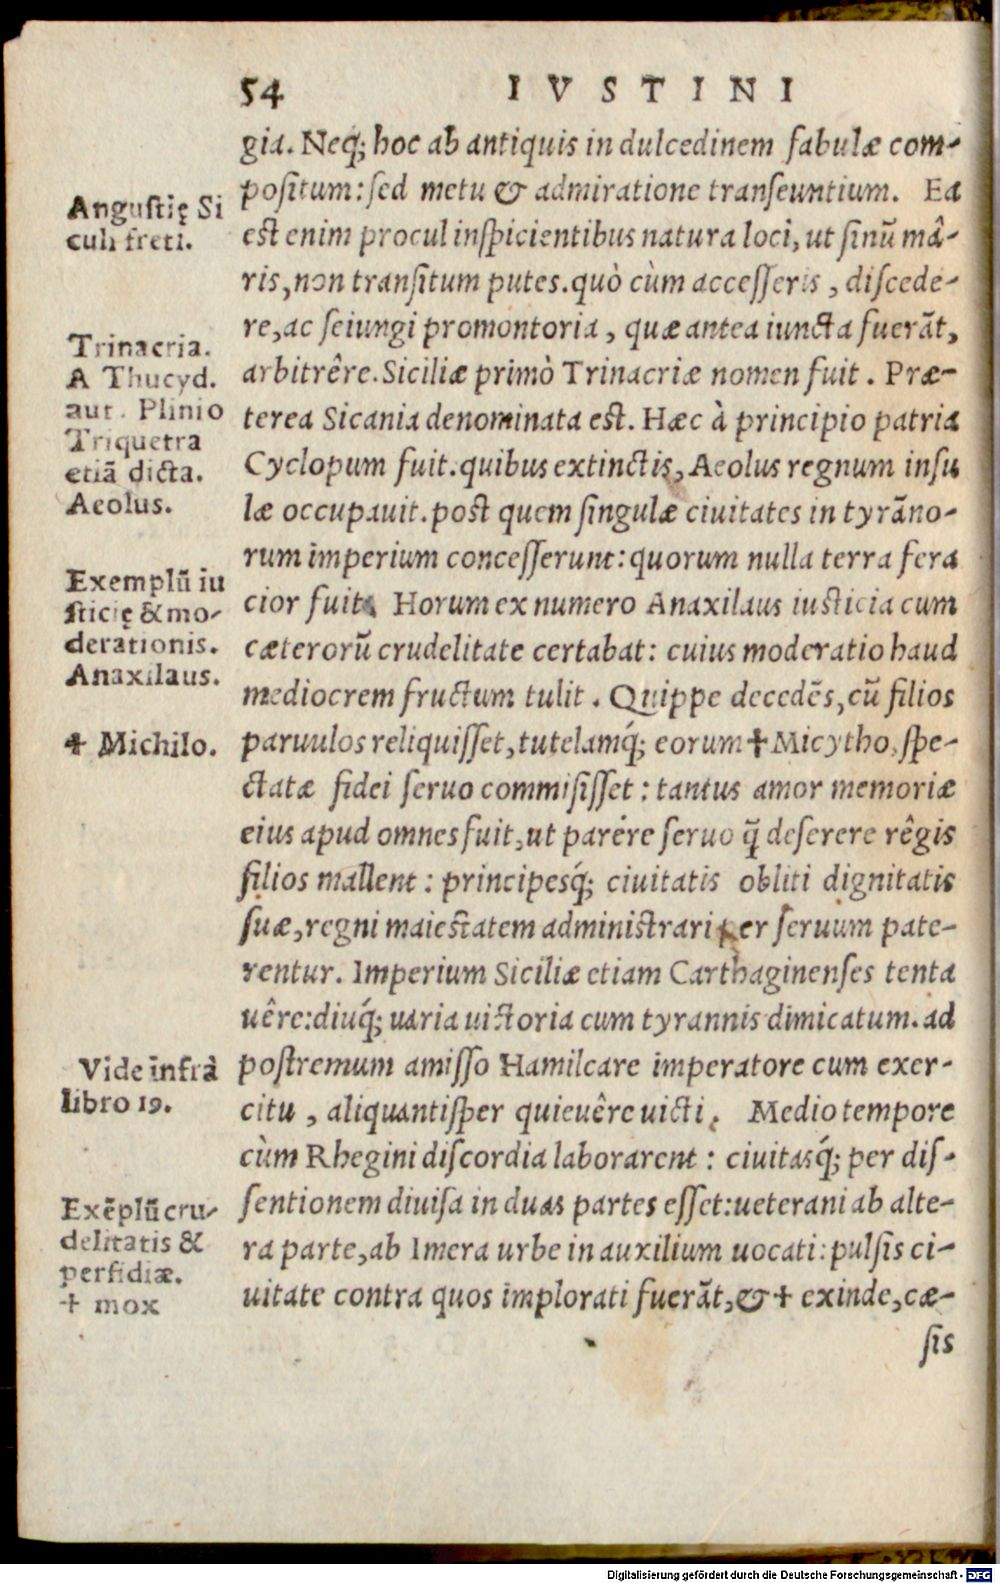 54 IVSTINI
gia. Neq; hoc ab antiquis in dulcedinem fabulæ com-
positum: sed metu & admiratione transeuntium. Ea
est enim procul inspicientibus natura loci, ut sinū mâ-
ris, non transitum putes. quò cùm accesseris, discede-
re, ac seiungi promontoria, quæ antea iuncta fuerāt,
arbitrêre. Siciliæ primò Trinacriæ nomen fuit. Præ-
terea Sicania denominata est. Hæc à principio patria
Cyclopum fuit. quibus extinctis, Aeolus regnum insu
læ occupauit. post quem singulæ ciuitates in tyrāno-
rum imperium concesserunt: quorum nulla terra fera
cior fuit. Horum ex numero Anaxilaus iusticia cum
cæterorū crudelitate certabat: cuius moderatio haud
mediocrem fructum tulit. Quippe decedēs, cū filios
paruulos reliquisset, tutelamq́; eorum ✝ Micytho, spe-
ctatæ fidei seruo commisisset: tantus amor memoriæ
eius apud omnes fuit, ut parêre seruo q̃ deserere rêgis
filios mallent: principesq́; ciuitatis obliti dignitatis
suæ, regni maiestatem administrari per seruum pate-
rentur. Imperium Siciliæ etiam Carthaginenses tenta
uêre: diuq́; uaria uictoria cum tyrannis dimicatum. ad
postremum amisso Hamilcare imperatore cum exer-
citu, aliquantisper quieuêre uicti. Medio tempore
cùm Rhegini discordia laborarent: ciuitasq́; per dis-
sentionem diuisa in duas partes esset: ueterani ab alte-
ra parte, ab Imera urbe in auxilium uocati: pulsis ci-
uitate contra quos implorati fuerāt, & ✝ exinde, cæ-
sis
Angustię Si
culi freti.
Trinacria.
A Thucyd.
aut. Plinio
Triquetra
etiā dicta.
Aeolus.
Exemplū iu
sticię & mo-
derationis.
Anaxilaus.
✝ Michilo.
Vide infrà
libro 19.
Exēplū cru-
delitatis &
perfidiæ.
✝ mox
Digitalisierung gefördert durch die Deutsche Forschungsgemeinschaft - DFG